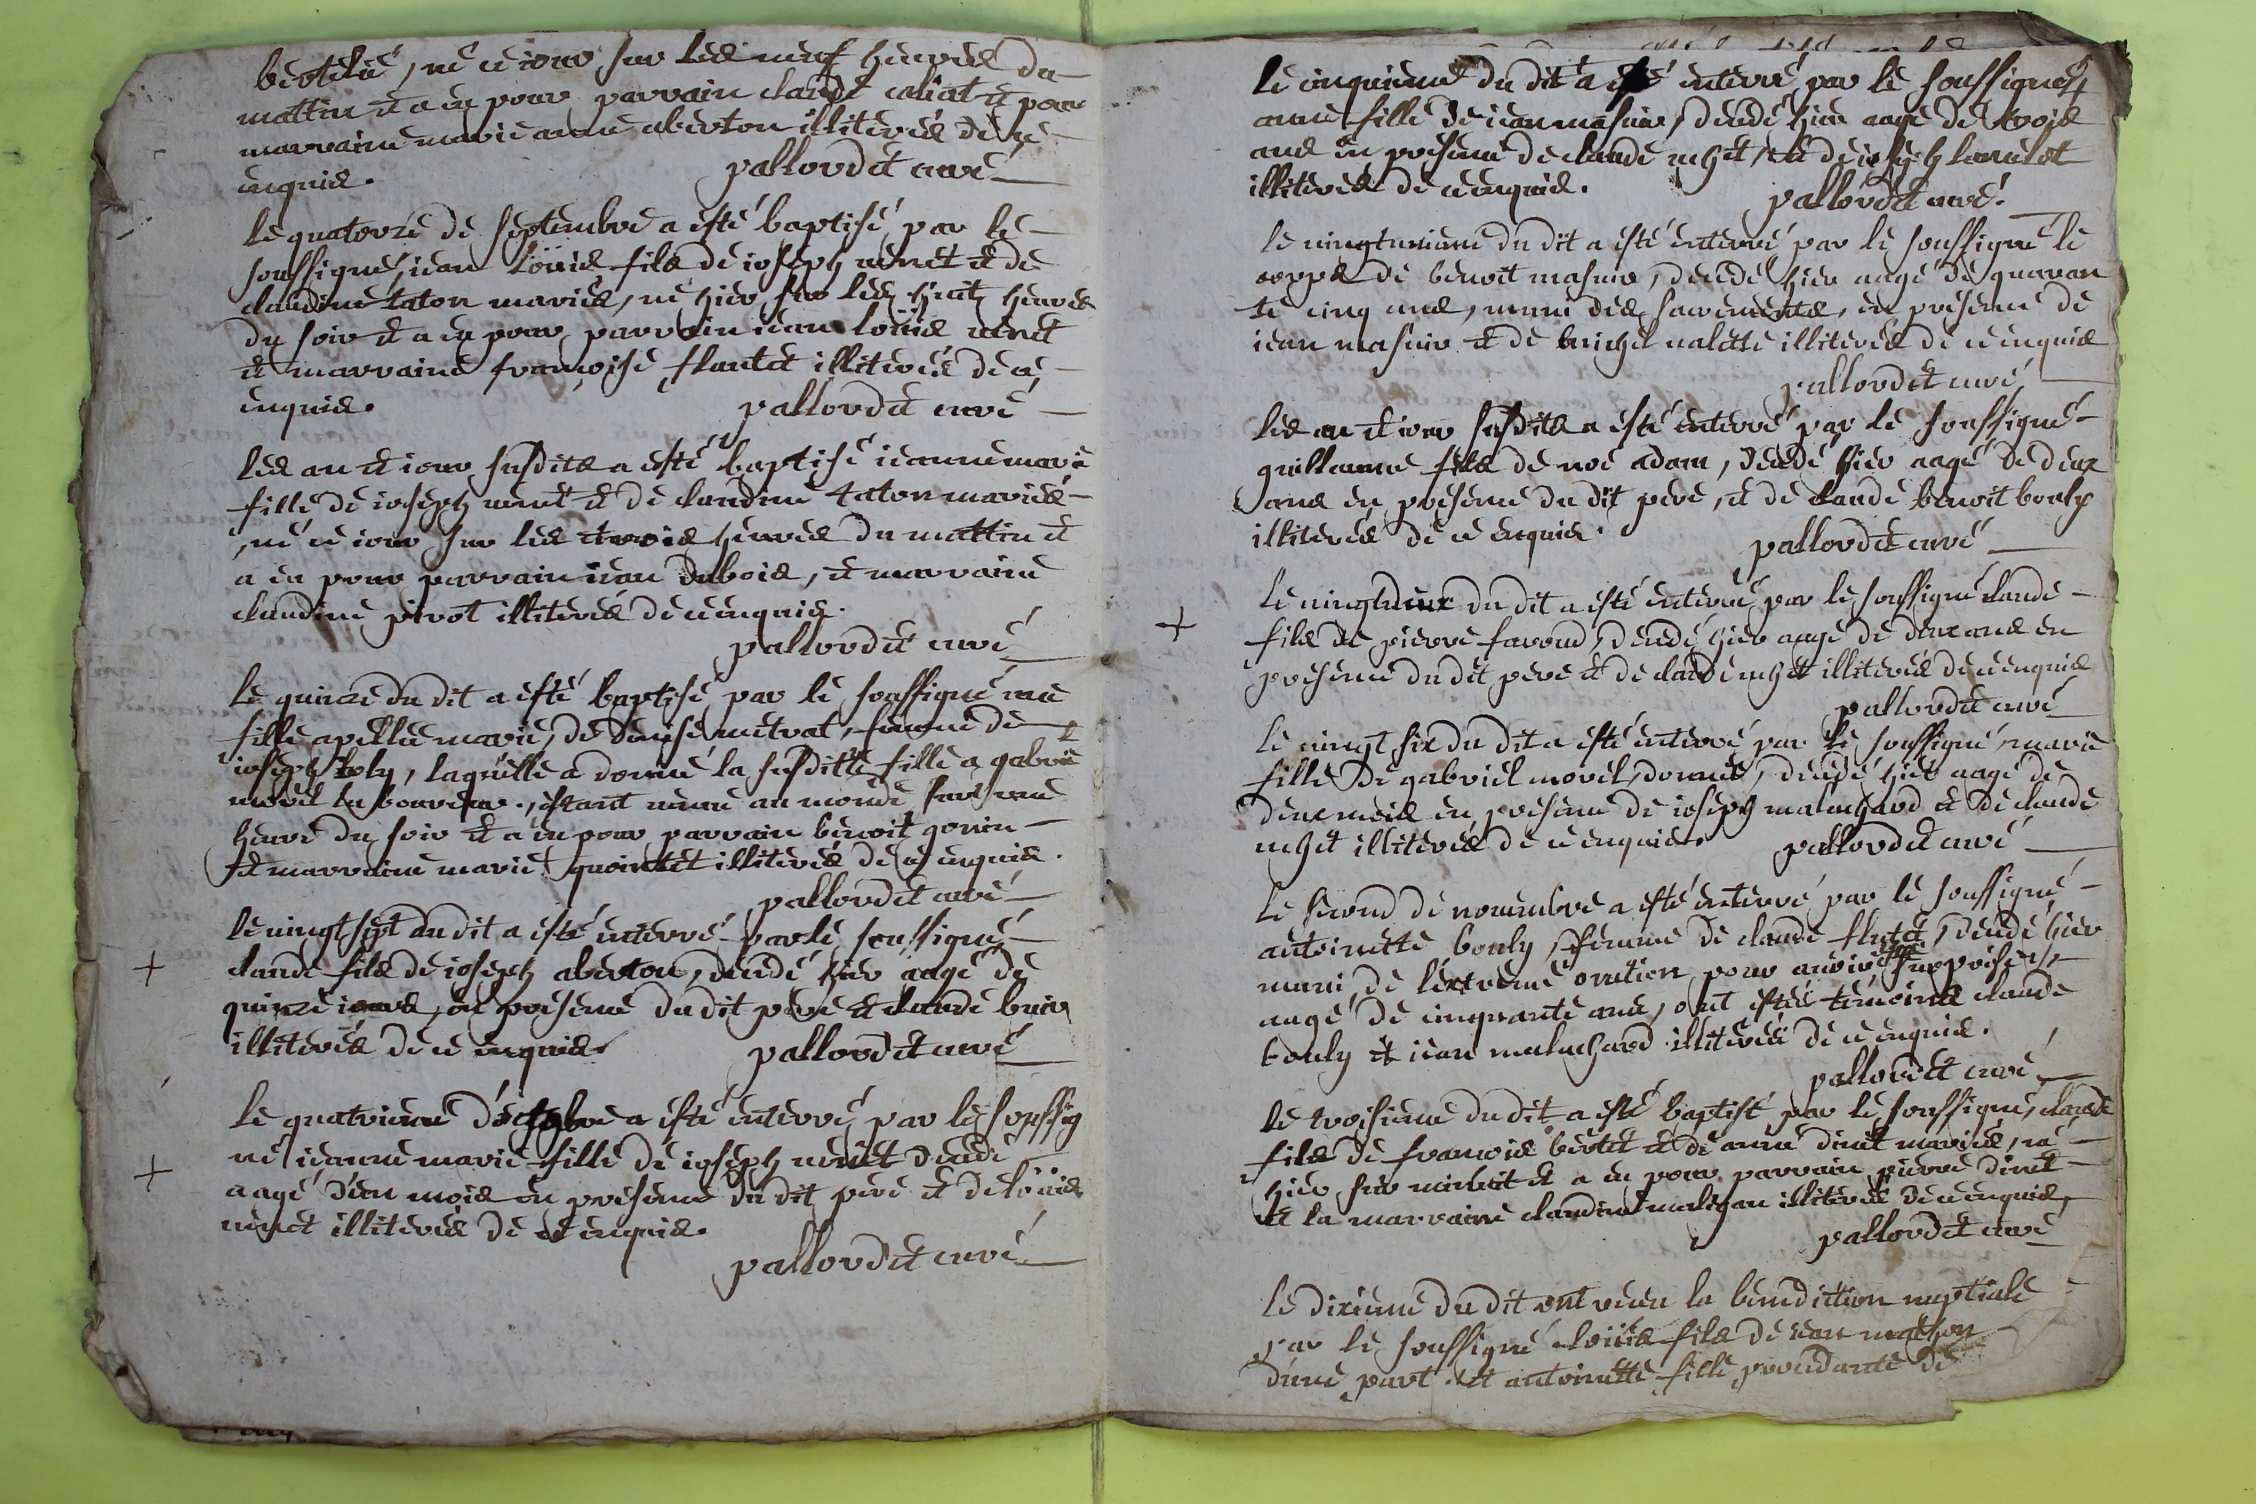 né ce iour sur les neuf heures du
mattin et a eu pour parrain claude et pour
marraine marie anne aberton illiterés de ce
enquis.
pallordet curé
Le quatorze de septembre a esté baptisé par le
soussigné, iean loüis fils de ioseph venet et de
claudine taton mariés, né hier sur les huit heures
du soir et a eu pour parrain iean loüis venet
et marraine françoise flantet illiterés de ce
enquis.
pallordet curé
Les an et iour susdits a esté baptisé ieanne marie
fille de ioseph venet et de claudine taton mariés
, né ce iour sur les trois heures du mattin et
a eu pour parrain iean dubois, et marraine
claudine pirot illiterés de ce enquis.
pallordet curé
Le quinze du dit a esté baptisé par le soussigné une
fille apellée marie, de denise metrat, femme de
ioseph boly, laquelle a donné la susditte fille a gabriel
morel laboureur, estant venue au monde sur une
heure du soir et a eu pour parrain benoit gonin
et marraine marie quointet illiterés de ce enquis.
pallordet curé
Le vingt sept du dit a esté enterré par le soussigné
claude fils de ioseph aberton, decedé hier aagé de
quinze iours, en presence du dit pere et claude
illiterés de ce enquis.
pallordet curé
Le quatrieme d'octobre a esté enterré par le soussig
né ieanne marie fille de ioseph venet decedé
aagé d'un mois en presence du dit pere et de loüis
venet illiterés de ce enquis.
pallordet curé
Le cinquieme du dit a esté enterré par le soussigné
anne fille de iean masuir, decedé hier aagé de trois
ans en presence de claude uchet, et de ioseph lancelot
illiterés de ce enquis.
pallordet curé
Le vingtunieme du dit a esté enterré par le soussigné le
corps de benoit masuir, decedé hier aagé de quaran
te cinq ans, muni des sacrements, en presence de
iean masuir et de michel valette illiterés de ce enquis
pallordet curé
Les an et iour susdits a esté enterré par le soussigné
guillaume fils de noé adam, decedé hier aagé de deux
ans en presence du dit pere, et de claude benoit bouly
illiterés de ce enquis.
pallordet curé
Le vingtdeux du dit a esté enterré par le soussigné claude
fils de pierre favond, decedé hier aagé de deux ans en
presence du dit pere et de claude uchet illiterés de ce enquis
pallordet curé
Le vingt six du dit a esté enterré par le soussigné, marie
fille de gabriel morel, donnée, decedé hier aagé de
deux mois en presence de ioseph maluchard et de claude
uchet illiterés de ce enquis.
pallordet curé
Le second de novembre a esté enterré par le soussigné
antoinette bouly, femme de claude flutet, decedé hier
muni de l'extreme onction pour avoir esté surprise,
aagé de cinquante ans, ont estés témoins claude
bouly et iean maluchard illiterés de ce enquis.
pallordet curé
Le troisieme du dit a esté baptisé par le soussigné, claude
fils de francois bertet et de anne dinet mariés, né
hier sur minuit et a eu pour parrain pierre dinet
et la marraine claudine maligau illiterés de ce enquis,
pallordet curé
Le dixieme du dit ont receu la benediction nuptiale
par le soussigné loüis fils de iean
d'une part et antoinette fille provdante de